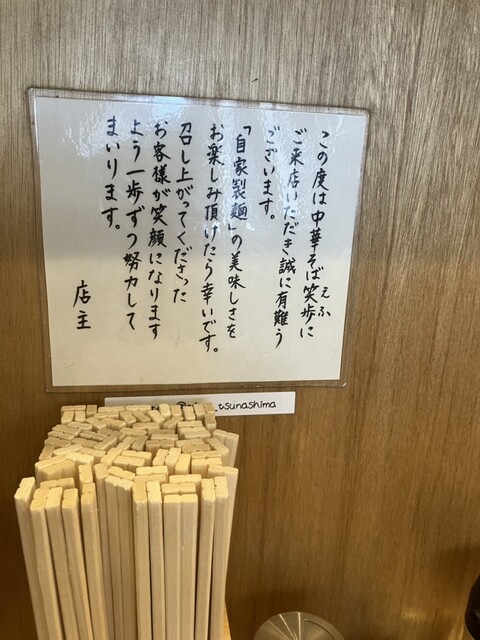 この度は中華そば笑歩に
えふ
ご来店いただき誠に有難う
ございます。
「自家製麺」の美味しさを
お楽しみ頂けたら幸いです。
召し上がってくださった
お客様が笑顔になります
よう一歩ずつ努力して
まいります。
店主
_tsunashima